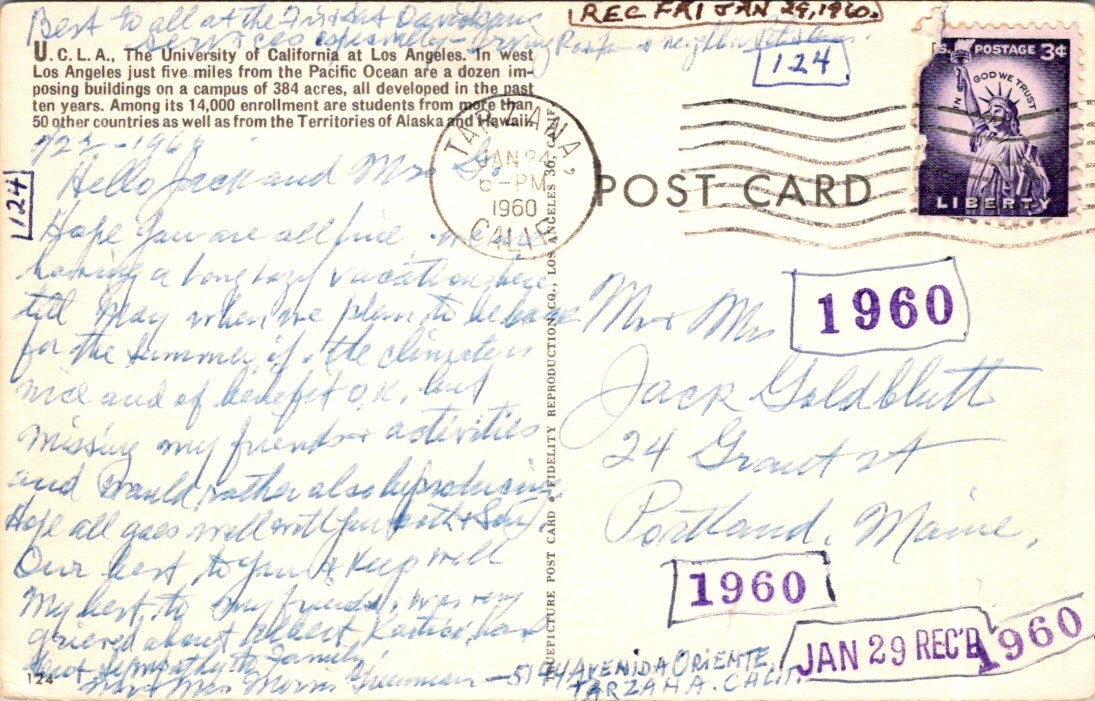 REC FRI JAN 29, 1960.
Best to all at the
services especially - Irving & neighbor
124
U.C.L.A., The University of California at Los Angeles. In west
Los Angeles just five miles from the Pacific Ocean are a dozen im-
posing buildings on a campus of 384 acres, all developed in the past
ten years. Among its 14,000 enrollment are students from more than
50 other countries as well as from the Territories of Alaska and Hawaii.
U.S. POSTAGE 3¢
IN GOD WE TRUST
LIBERTY
TARZANA,
JAN 24
6 - PM
1960
CALIF.
POST CARD
124
Hello Jack and Mrs G.
Hope you are all fine. we are
having a long lazy vacation here
till May when we plan to be home
for the summer, if the climate is
nice and of benefit O.K. but
missing my friends & activities
and would rather also be producing
Hope all goes well with you both & Son.
Our best to you & keep well
My best to my friends, was very
grieved about Albert
sent sympathy to family
Mr & Mrs Morris — 5144 AVENIDA ORIENTE,
TARZANA. CALIF.
124
TRUEPICTURE POST CARD • FIDELITY REPRODUCTION CO., LOS ANGELES 36, CALIF.
1960
Mr & Mrs
Jack Goldblatt
24 Grant St
Portland, Maine.
1960
JAN 29 REC'D
1960